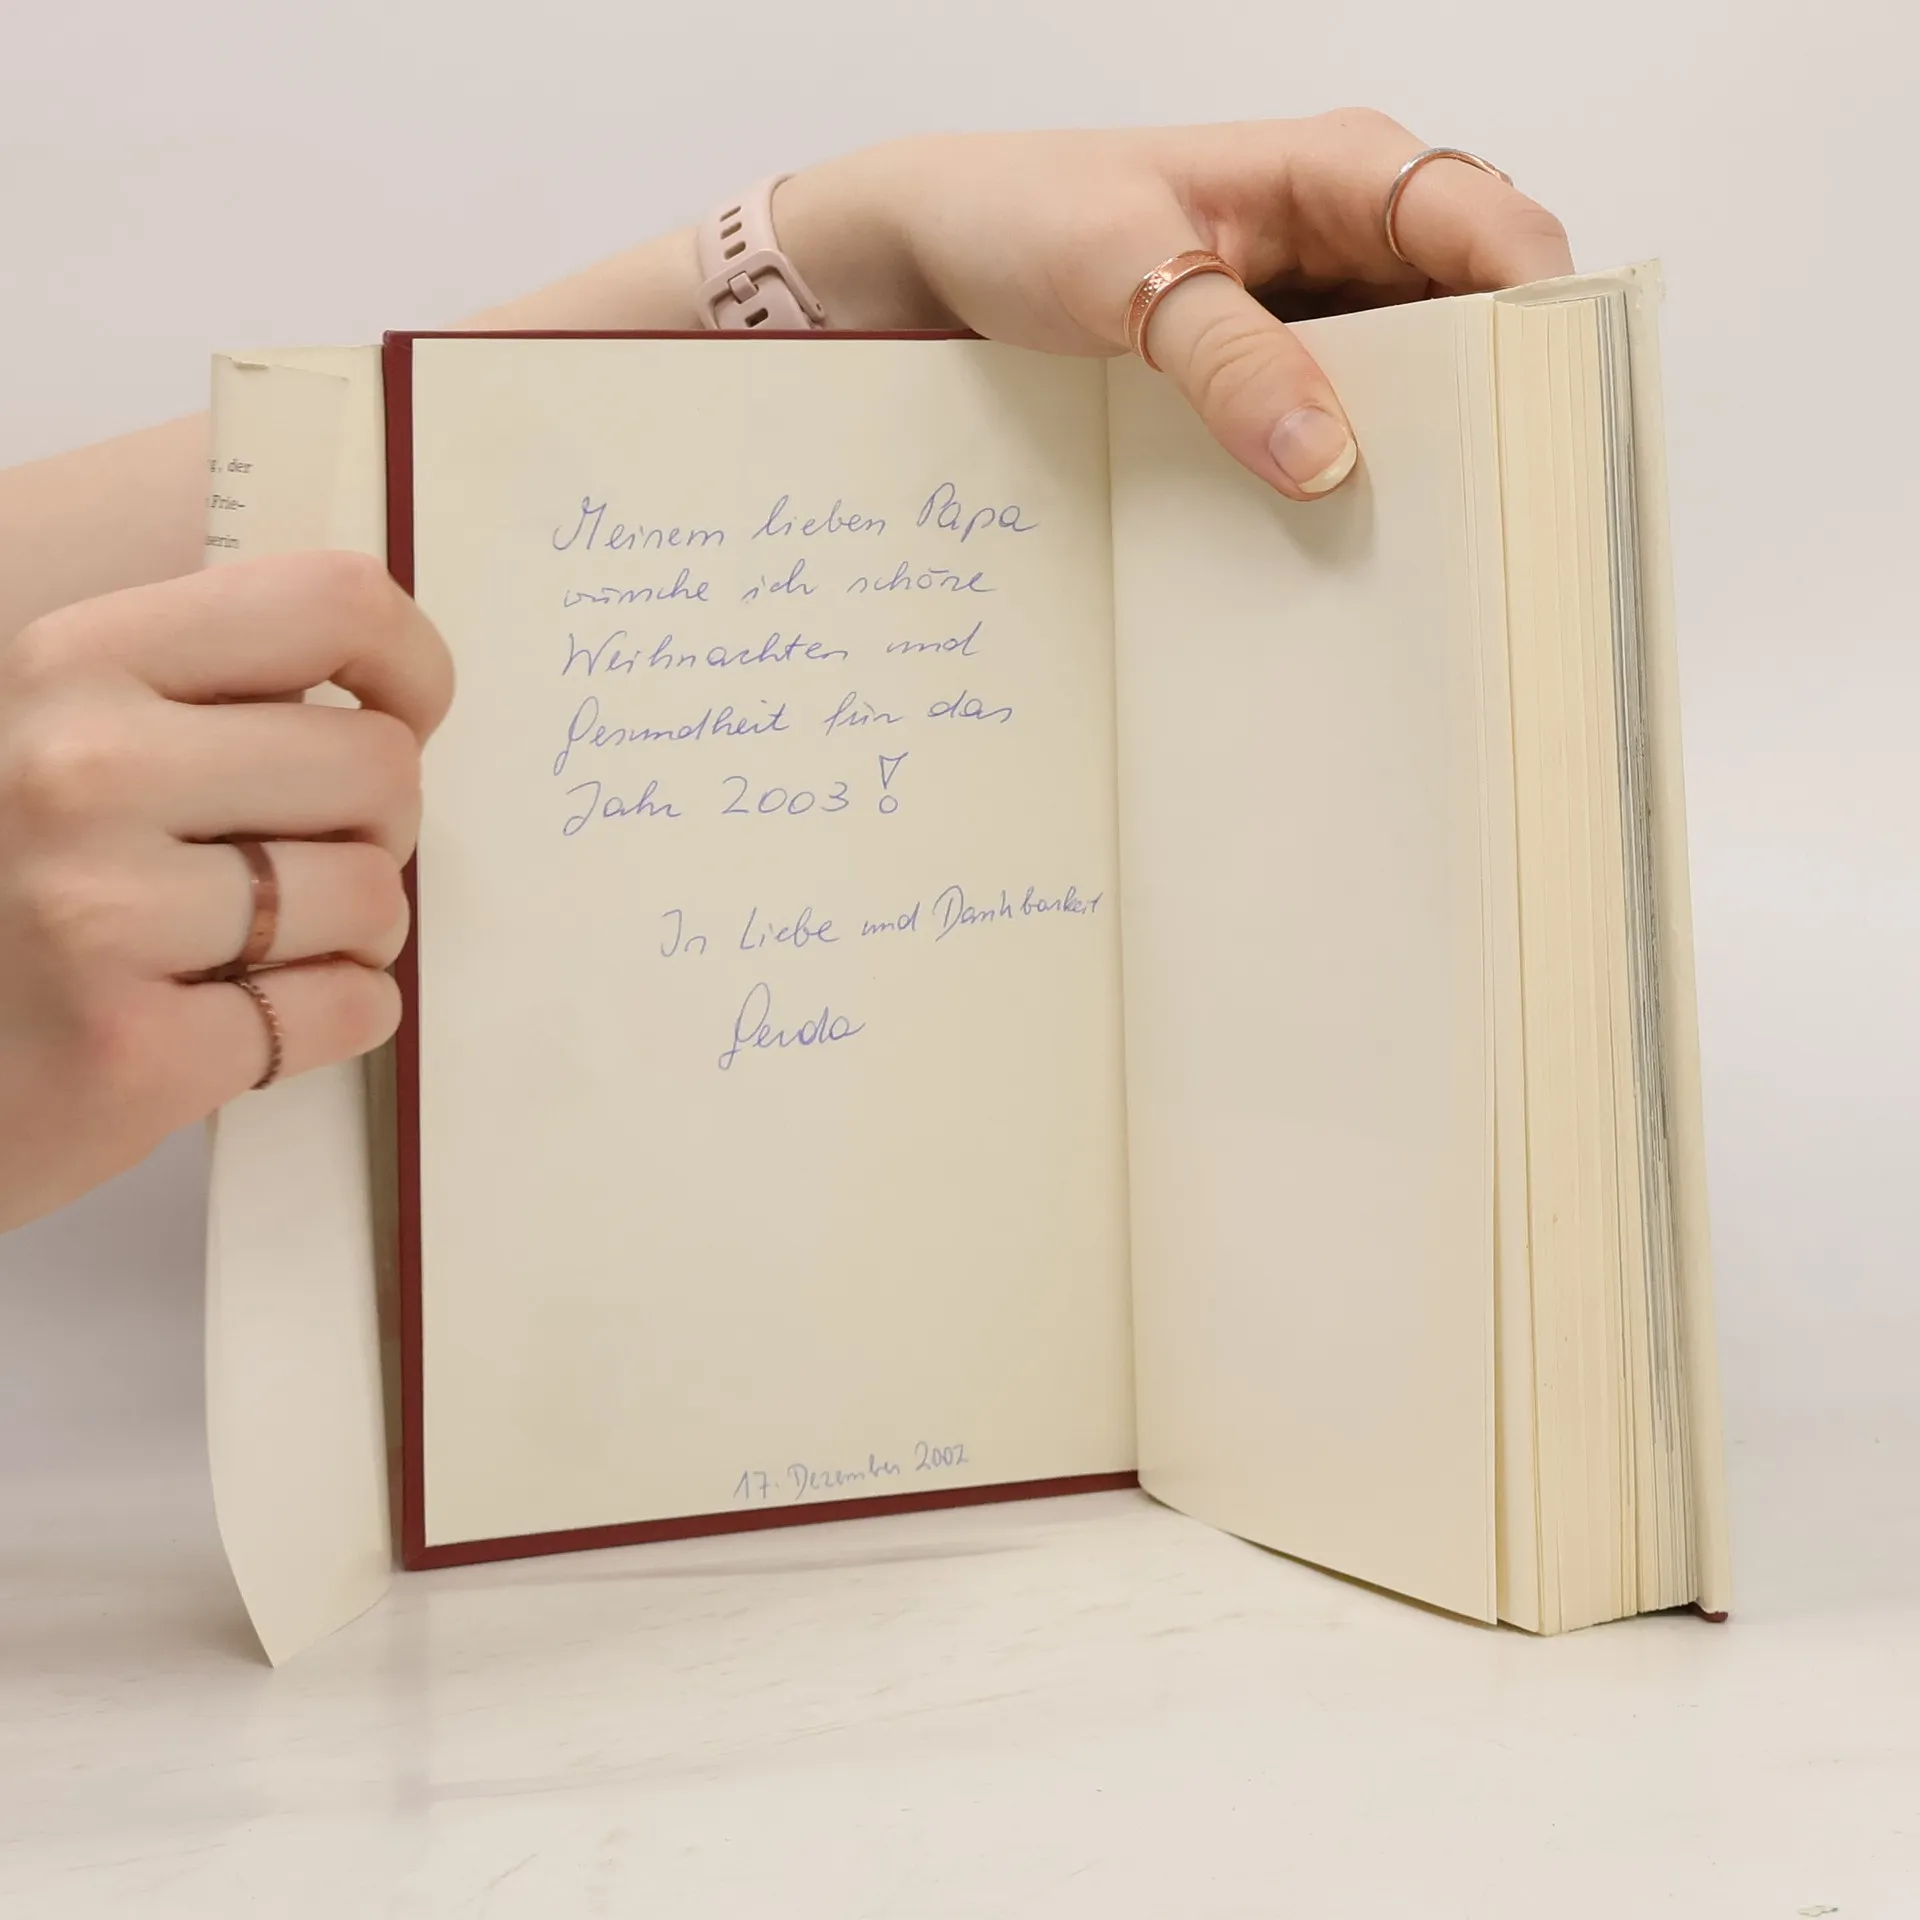 , der
Frie-
serim
Meinem lieben Papa
wünsche ich schöne
Weihnachten und
Gesundheit für das
Jahr 2003!
In Liebe und Dankbarkeit
Gerda
17. Dezember 2002